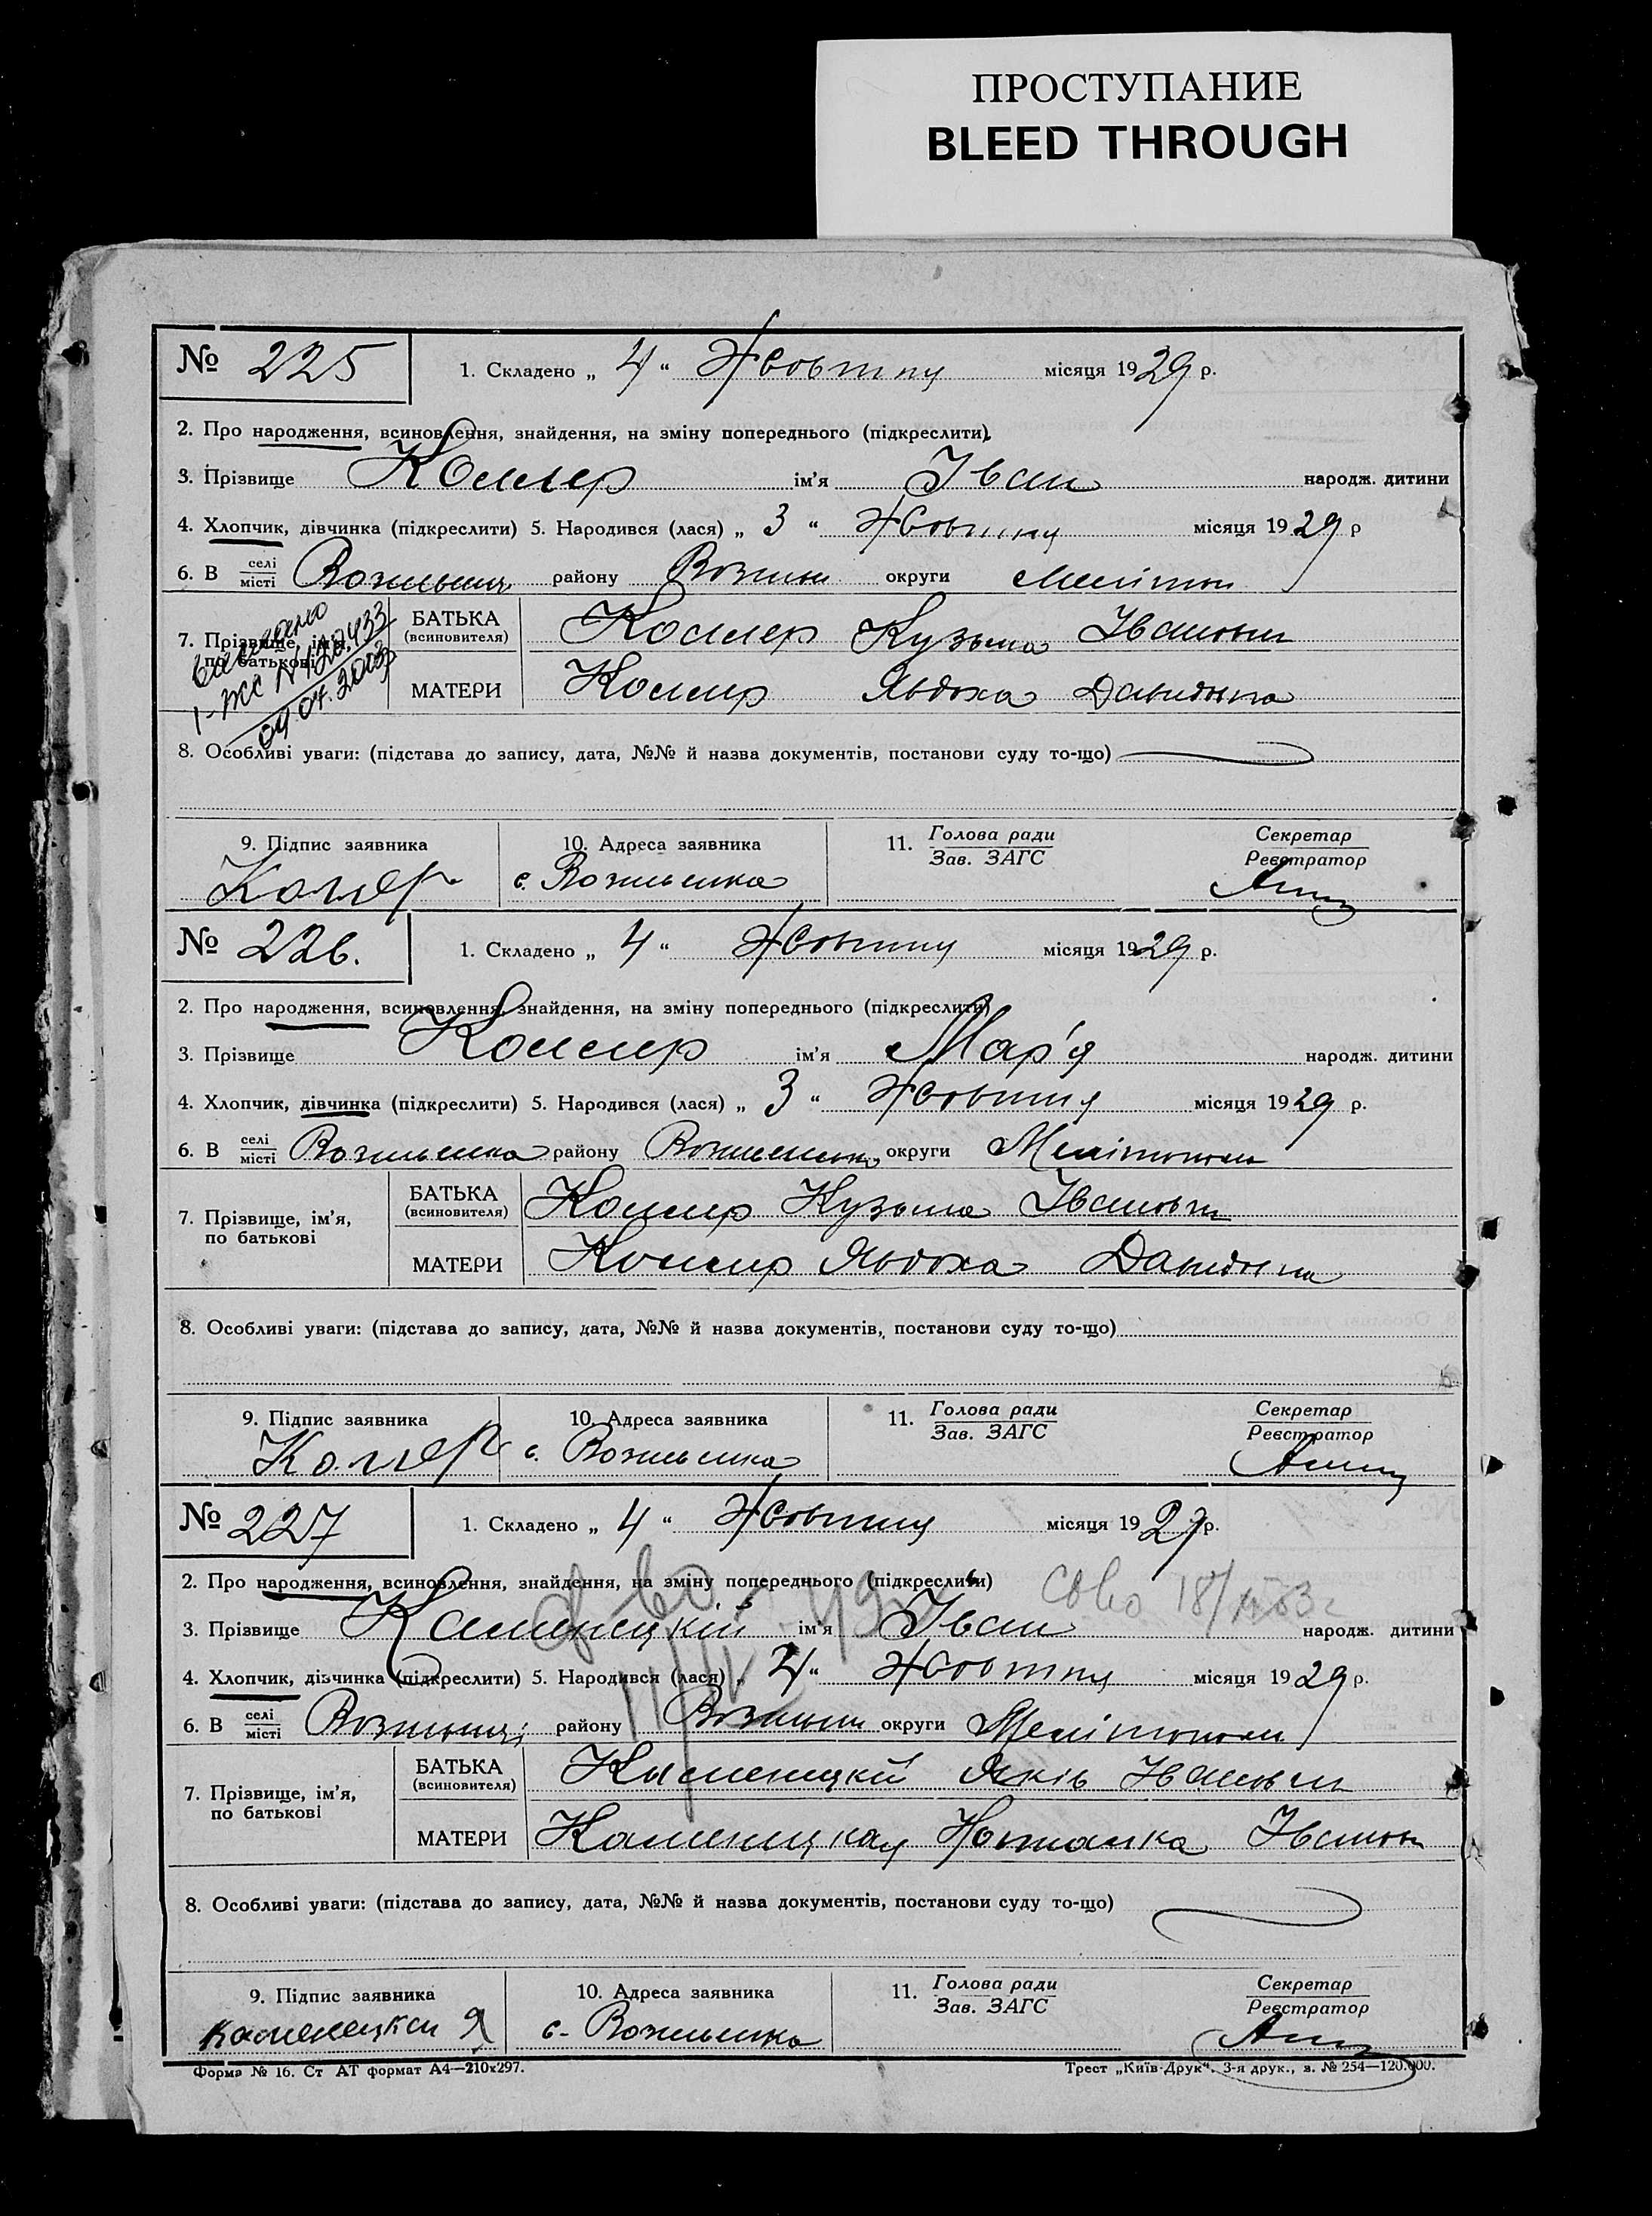 ПРОСТУПАНИЕ
BLEED THROUGH
№ 225 1. Складено „ 4 “ Жовтня місяця 1929 р.
2. Про народження, всиновлення, знайдення, на зміну попереднього (підкреслити).
3. Прізвище Коллер ім'я Іван народж. дитини
4. Хлопчик, дівчинка (підкреслити) 5. Народився (лася) „ 3 “ Жовтня місяця 1929 р
6. В селі/місті району округи Мелітоп
7. Прізвище, ім'я, по батькові БАТЬКА (всиновителя) Коллер Кузьма Іванович
МАТЕРИ Коллер Явдоха Давидовна
1-ЖС № 09.04.2003р
8. Особливі уваги: (підстава до запису, дата, №№ й назва документів, постанови суду то-що)
9. Підпис заявника 10. Адреса заявника 11. Голова ради Секретар
Зав. ЗАГС Реєстратор
Коллер с.
№ 226. 1. Складено „ 4 “ Жовтня місяця 1929 р.
2. Про народження, всиновлення, знайдення, на зміну попереднього (підкреслити)
3. Прізвище Коллер ім'я Мар'я народж. дитини
4. Хлопчик, дівчинка (підкреслити) 5. Народився (лася) „ 3 “ Жовтня місяця 1929 р.
6. В селі/місті району округи Мелітополь
7. Прізвище, ім'я, по батькові БАТЬКА (всиновителя) Коллер Кузьма Іванович
МАТЕРИ Коллер Явдоха Давидовна
8. Особливі уваги: (підстава до запису, дата, №№ й назва документів, постанови суду то-що)
9. Підпис заявника 10. Адреса заявника 11. Голова ради Секретар
Зав. ЗАГС Реєстратор
Коллер с.
№ 227 1. Складено „ 4 “ Жовтня місяця 1929 р.
2. Про народження, всиновлення, знайдення, на зміну попереднього (підкреслити)
3. Прізвище Каменецкій ім'я Іван народж. дитини
4. Хлопчик, дівчинка (підкреслити) 5. Народився (лася) „ “ Жовтня місяця 1929 р.
6. В селі/місті району округи Мелітополь
7. Прізвище, ім'я, по батькові БАТЬКА (всиновителя) Каменецкій Яків Іванович
МАТЕРИ Каменецкая Іванов
8. Особливі уваги: (підстава до запису, дата, №№ й назва документів, постанови суду то-що)
9. Підпис заявника 10. Адреса заявника 11. Голова ради Секретар
Зав. ЗАГС Реєстратор
Каменецкій Я с-
Форма № 16. Ст АТ формат А4—210х297. Трест „Київ-Друк“. 3-я друк., з. № 254—120.000.